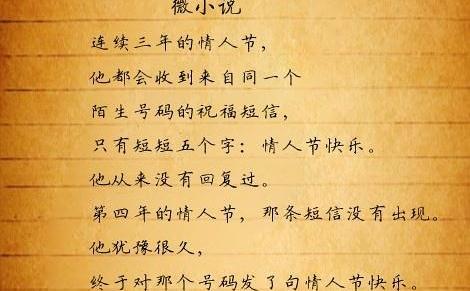 微小说
连续三年的情人节，
他都会收到来自同一个
陌生号码的祝福短信，
只有短短五个字：情人节快乐。
他从来没有回复过。
第四年的情人节，那条短信没有出现。
他犹豫很久，
终于对那个号码发了句情人节快乐。